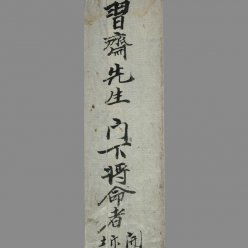 習齋先生 门下將命者